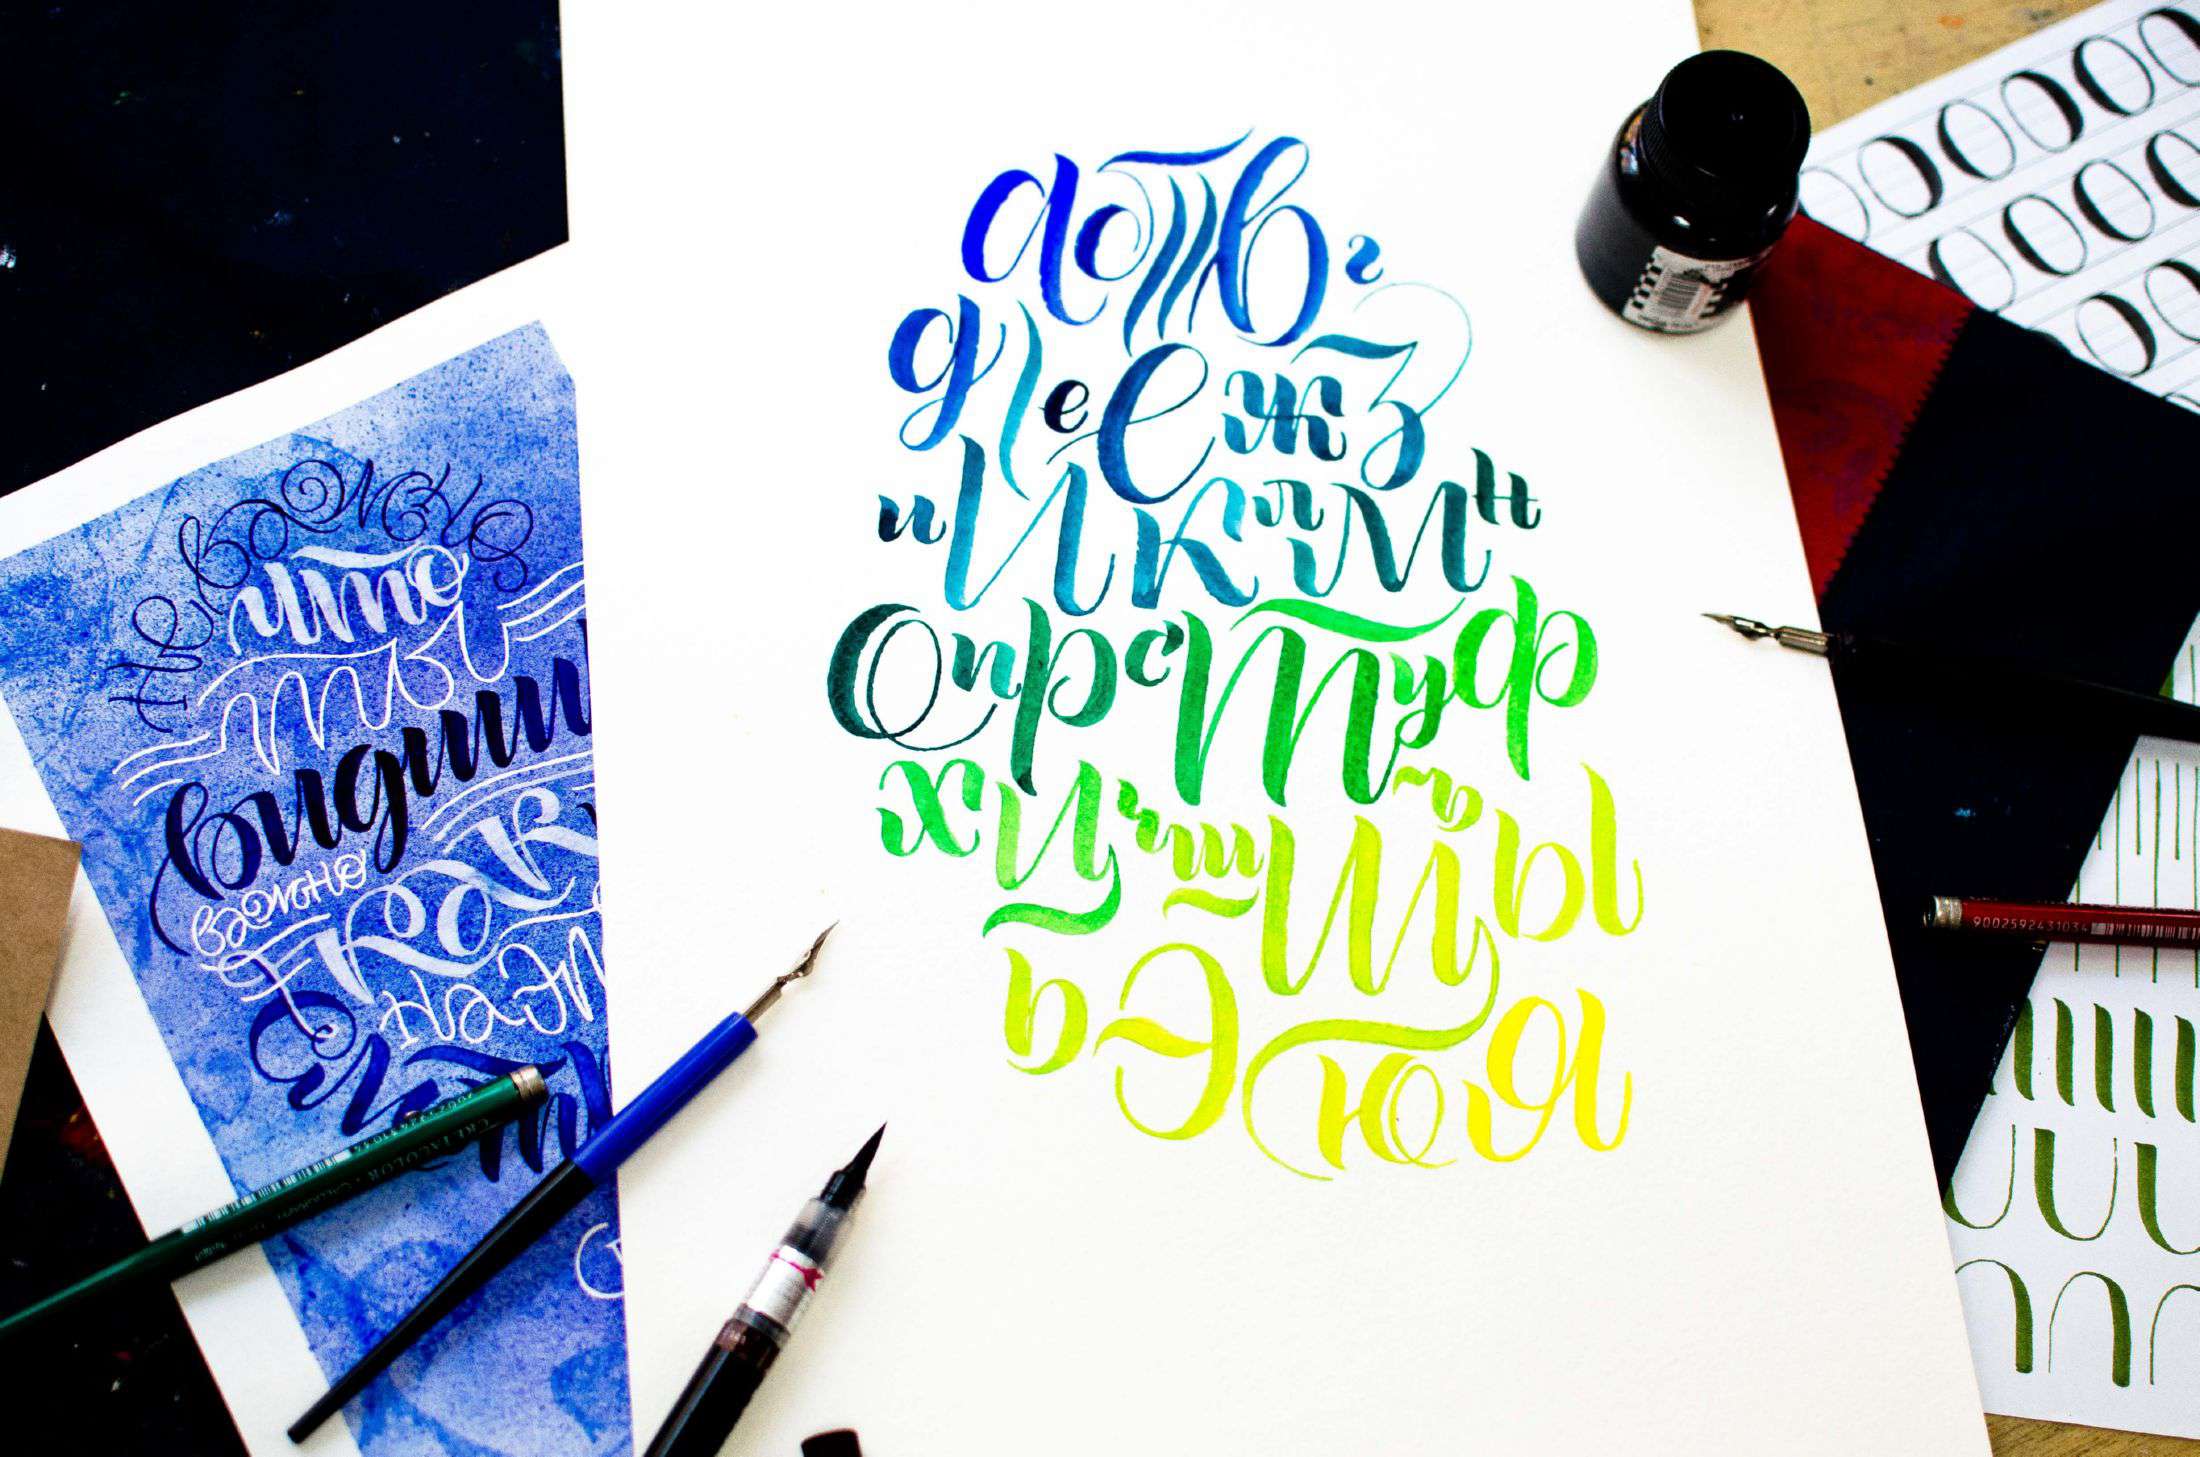 а б в г
д е ё ж з
и й к л м н
о п р с т у ф
х ц ч ш щ ъ ы
ь э ю я
неважно
что
ты
видиш
важно
на эт
CRETACOLOR
9002592431034